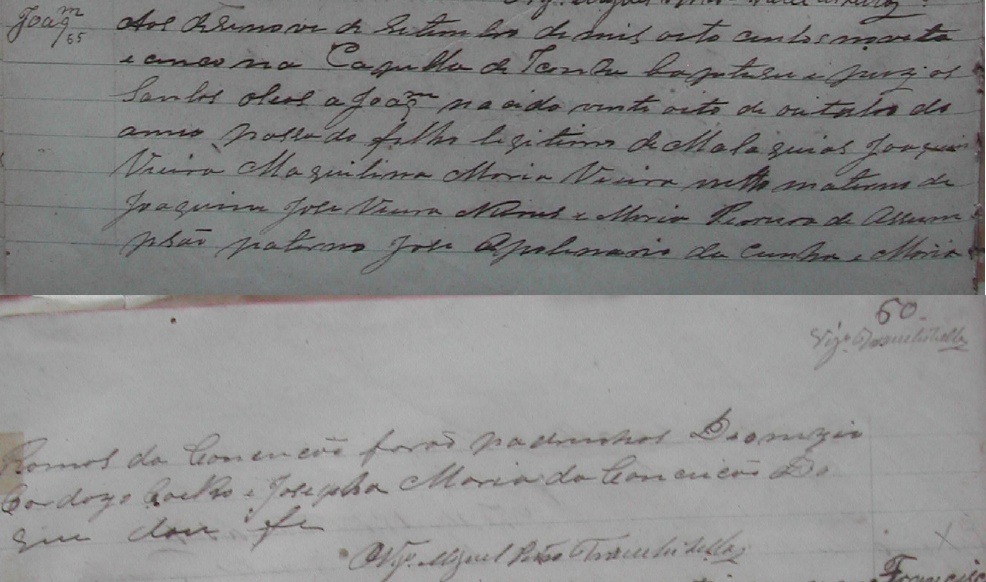 Joaqm
65
Aos desenove de Setembro de mil oito centos noventa
e cinco na Capella de baptisei e puz os
Santos oleos a Joaqm nacido vinte oito de outubro do
anno passado filho legitimo de Malaquias Joaquim
Vieira Maquilina Maria Vieira netto materno de
Joaquim Jose Vieira Nunes e Maria Pereira de Assum
psão paterno Jose Apolinario da Cunha e Maria
60
Vigo Tranchitella
Ramos da Conceicão forão padrinhos Dionizio
Cardozo Coelho e Josepha Maria da Conceicão Do
que dou fe
Vigo Miguel Tranchitella
Francisc